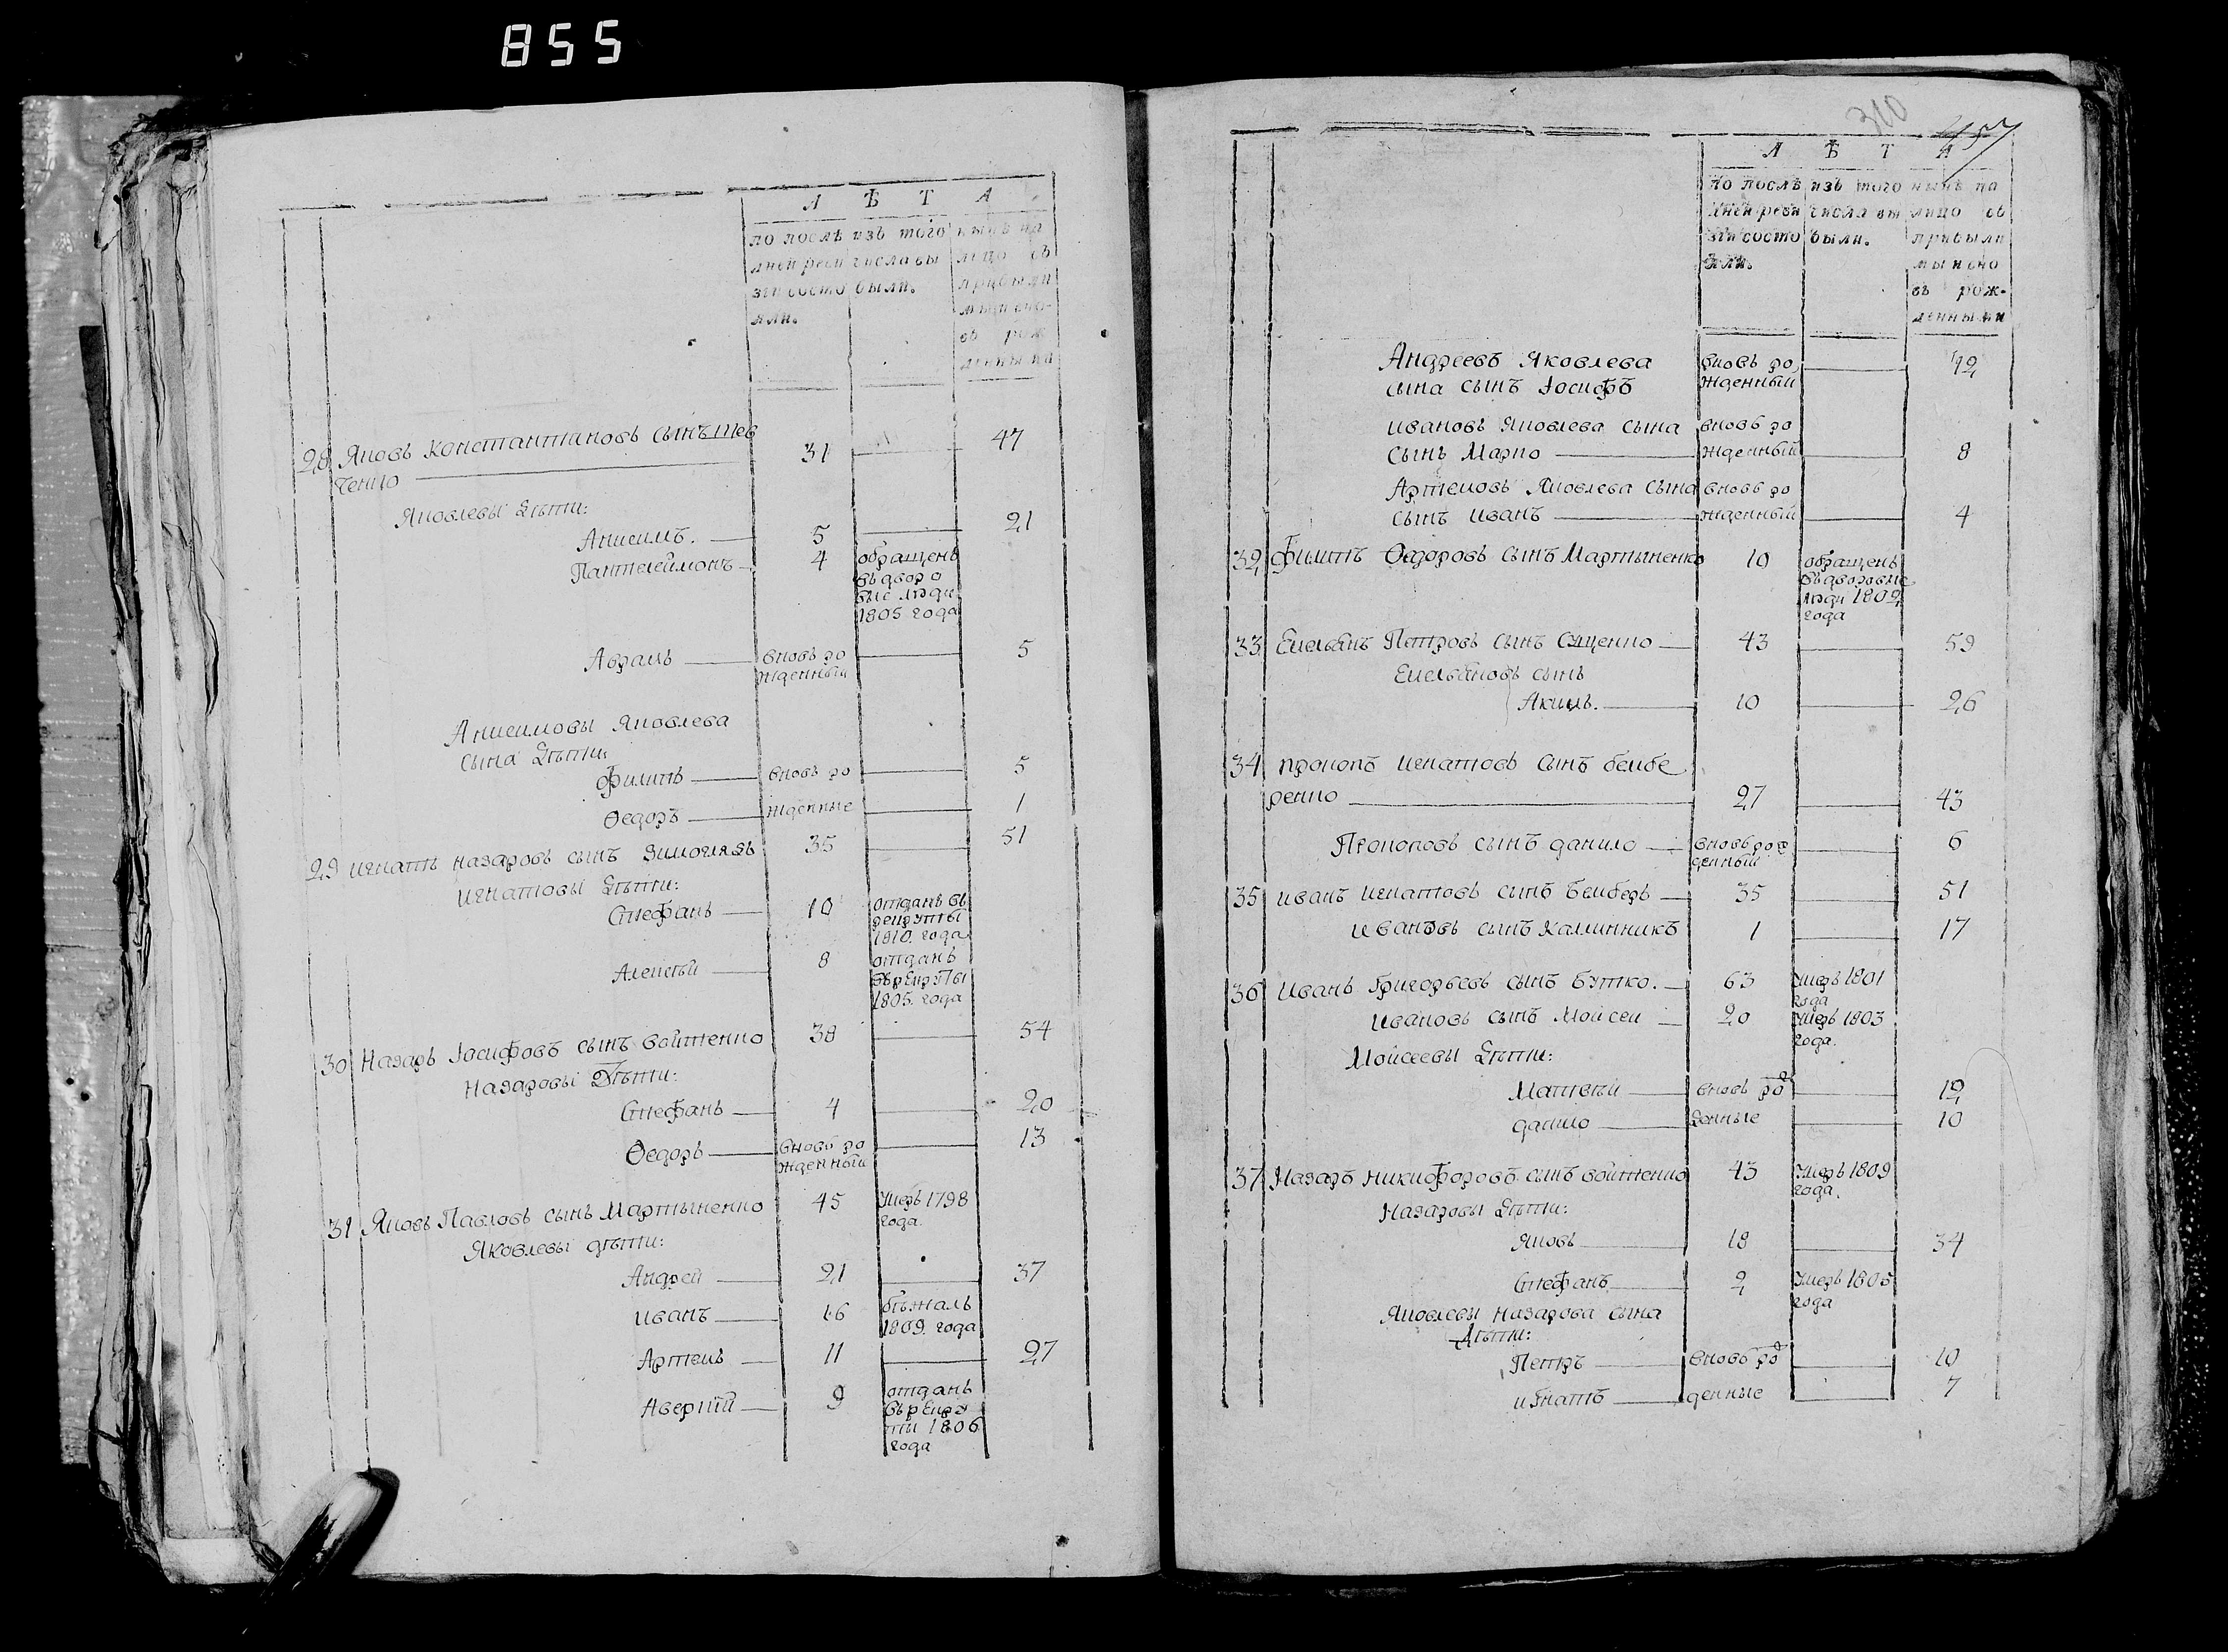 855
Л Ѣ Т А
по послѣ изъ того нынѣ на
дней реви числа вы лицо съ
зіи состо были. прибыли
яли. ми и сно
въ рож
денными
28 Яковъ Константиновъ сынъ Шев 31 47
ченко
Яковлевы дѣти:
Анисимъ. 5 21
Пантелеймонъ 4 обращенъ
въ дворо
вые люди
1805 года
Аврамъ вновь ро 5
жденный
Анисимовы Яковлева
сына дѣти:
Филипъ вновь ро 5
Ѳедоръ жденные 1
29 Игнатъ Назаровъ сынъ 35 51
Игнатовы дѣти:
Стефанъ 10 отданъ въ
рекруты
1810. года
Алексѣй 8 отданъ
въ рекруты
1805. года
30 Назаръ Іосифовъ сынъ Войтенко 38 54
Назаровы дѣти:
Стефанъ 4 20
Ѳедоръ вновь ро 13
жденный
31 Яковъ Павловъ сынъ Мартыненко 45 умеръ 1798
года.
Яковлевы дѣти:
Андрей 21 37
Иванъ 16 бѣжалъ
1809. года
Артемъ 11 27
Аверкій 9 отданъ
въ рекру
ты 1806
года
310
457
Л Ѣ Т А
по послѣ изъ того нынѣ на
дней реви числа вы лицо съ
зіи состо были. прибыли
яли. ми и сно
въ рож-
денными
Андреевъ Яковлева вновь ро 12
сына сынъ Іосифъ жденный
Ивановъ Яковлева сына вновь ро
сынъ Марко жденный 8
Артемовъ Яковлева сына вновь ро
сынъ Иванъ жденный 4
32 Филипъ Ѳедоровъ сынъ Мартыненко 10 обращенъ
въ дворовые
люди 1802
года
33 Емельянъ Петровъ сынъ Сущенко 43 59
Емельяновъ сынъ
Акимъ. 10 26
34 Прокопъ Игнатовъ сынъ Бембе
ренко 27 43
Прокоповъ сынъ Данило вновь рож 6
денный
35 Иванъ Игнатовъ сынъ Бемберъ 35 51
Ивановъ сынъ Калинникъ 1 17
36 Иванъ Григорьевъ сынъ Бутко. 63 умеръ 1801
года
Ивановъ сынъ Мойсей 20 умеръ 1803
года.
Мойсеевы дѣти:
Матвѣй вновь рож 12
Данило денные 10
37 Назаръ Никифоровъ сынъ Войтенко 43 умеръ 1809
года.
Назаровы дѣти:
Яковъ 18 34
Стефанъ 2 умеръ 1805
года
Яковлевы Назарова сына
дѣти:
Петръ вновь рож 10
Игнатъ денные 7